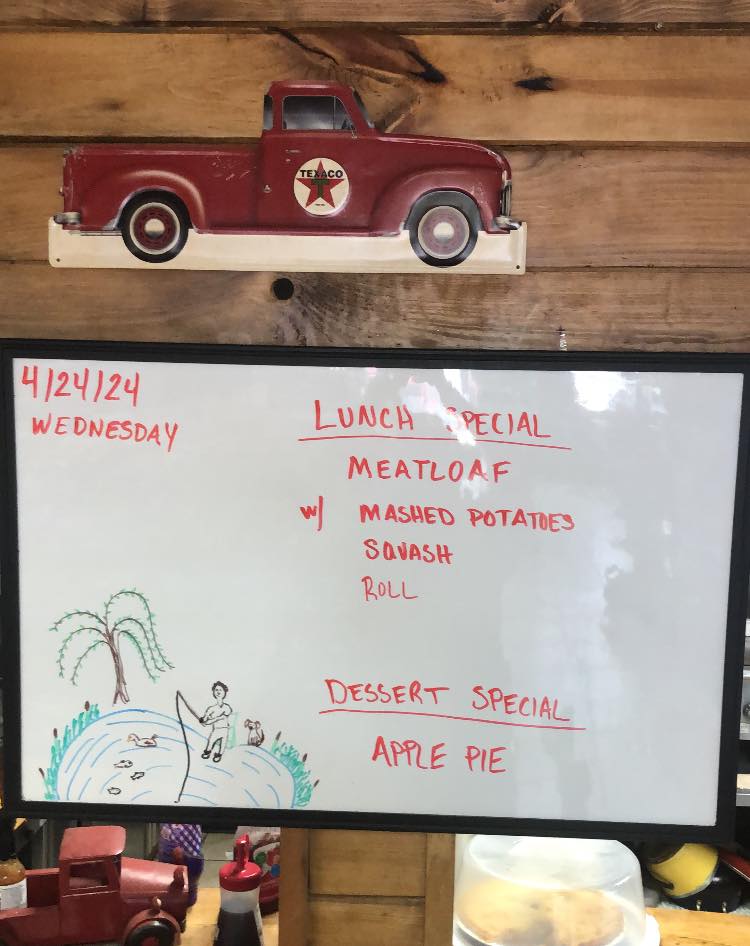 TEXACO
T
4/24/24
WEDNESDAY
LUNCH SPECIAL
MEATLOAF
w/ MASHED POTATOES
SQUASH
ROLL
DESSERT SPECIAL
APPLE PIE